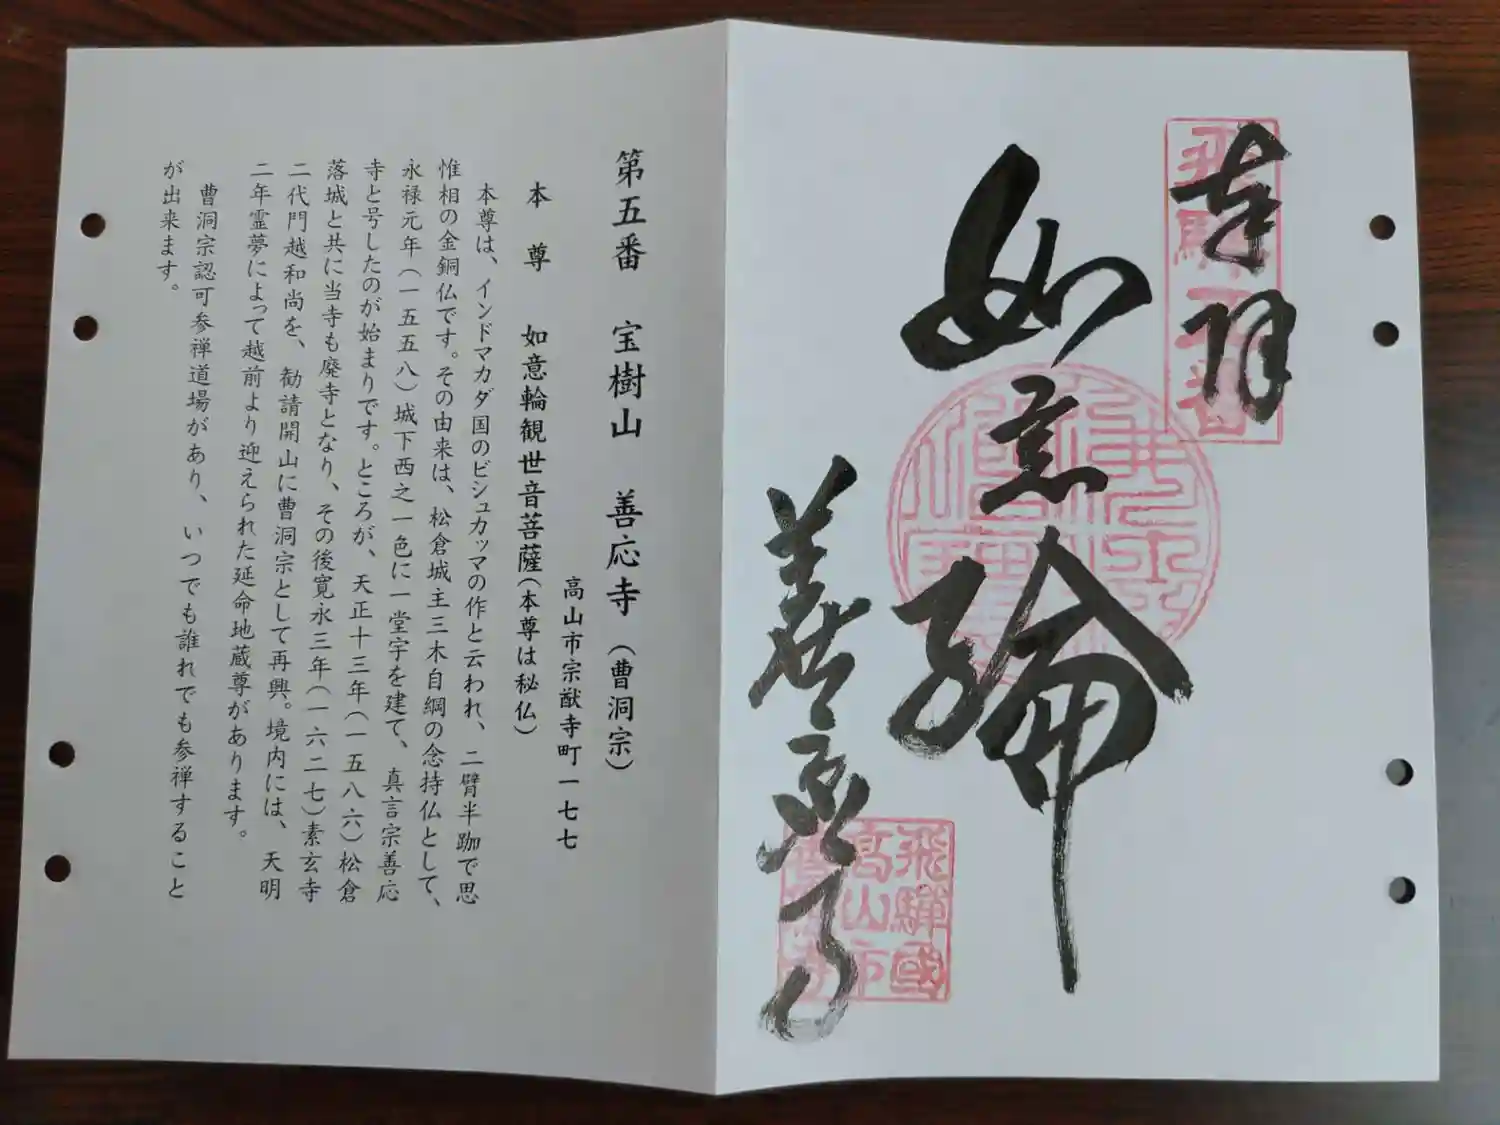 奉拝
如意輪
善応寺
飛騨國
高山市
第五番 宝樹山 善応寺(曹洞宗)
高山市宗猷寺町一七七
本尊 如意輪観世音菩薩(本尊は秘仏)
本尊は、インドマカダ国のビシュカッマの作と云われ、二臂半跏で思
惟相の金銅仏です。その由来は、松倉城主三木自綱の念持仏として、
永禄元年(一五五八)城下西之一色に一堂宇を建て、真言宗善応
寺と号したのが始まりです。ところが、天正十三年(一五八六)松倉
落城と共に当寺も廃寺となり、その後寛永三年(一六二七)素玄寺
二代門越和尚を、勧請開山に曹洞宗として再興。境内には、天明
二年霊夢によって越前より迎えられた延命地蔵尊があります。
曹洞宗認可参禅道場があり、いつでも誰れでも参禅すること
が出来ます。